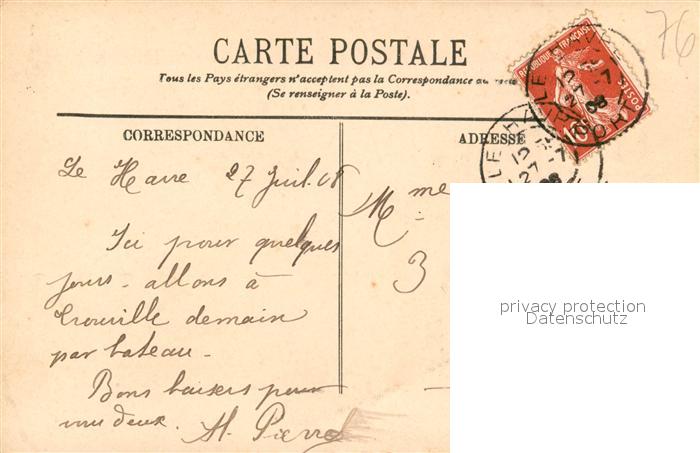 76
CARTE POSTALE
Tous les Pays étrangers n'acceptent pas la Correspondance au
(Se renseigner à la Poste).
RÉPUBLIQUE FRANÇAISE
POSTES
10
LE HAVRE
PORT
27 -7
08
CORRESPONDANCE
ADRESSE
LE HAVRE
27 -7
08
Le Havre 27 Juil. 08
Ici pour quelques
jours - allons à
Trouville demain
par bateau -
Bons baisers pour
vous deux.
Pierre
Mme
3
privacy protection
Datenschutz